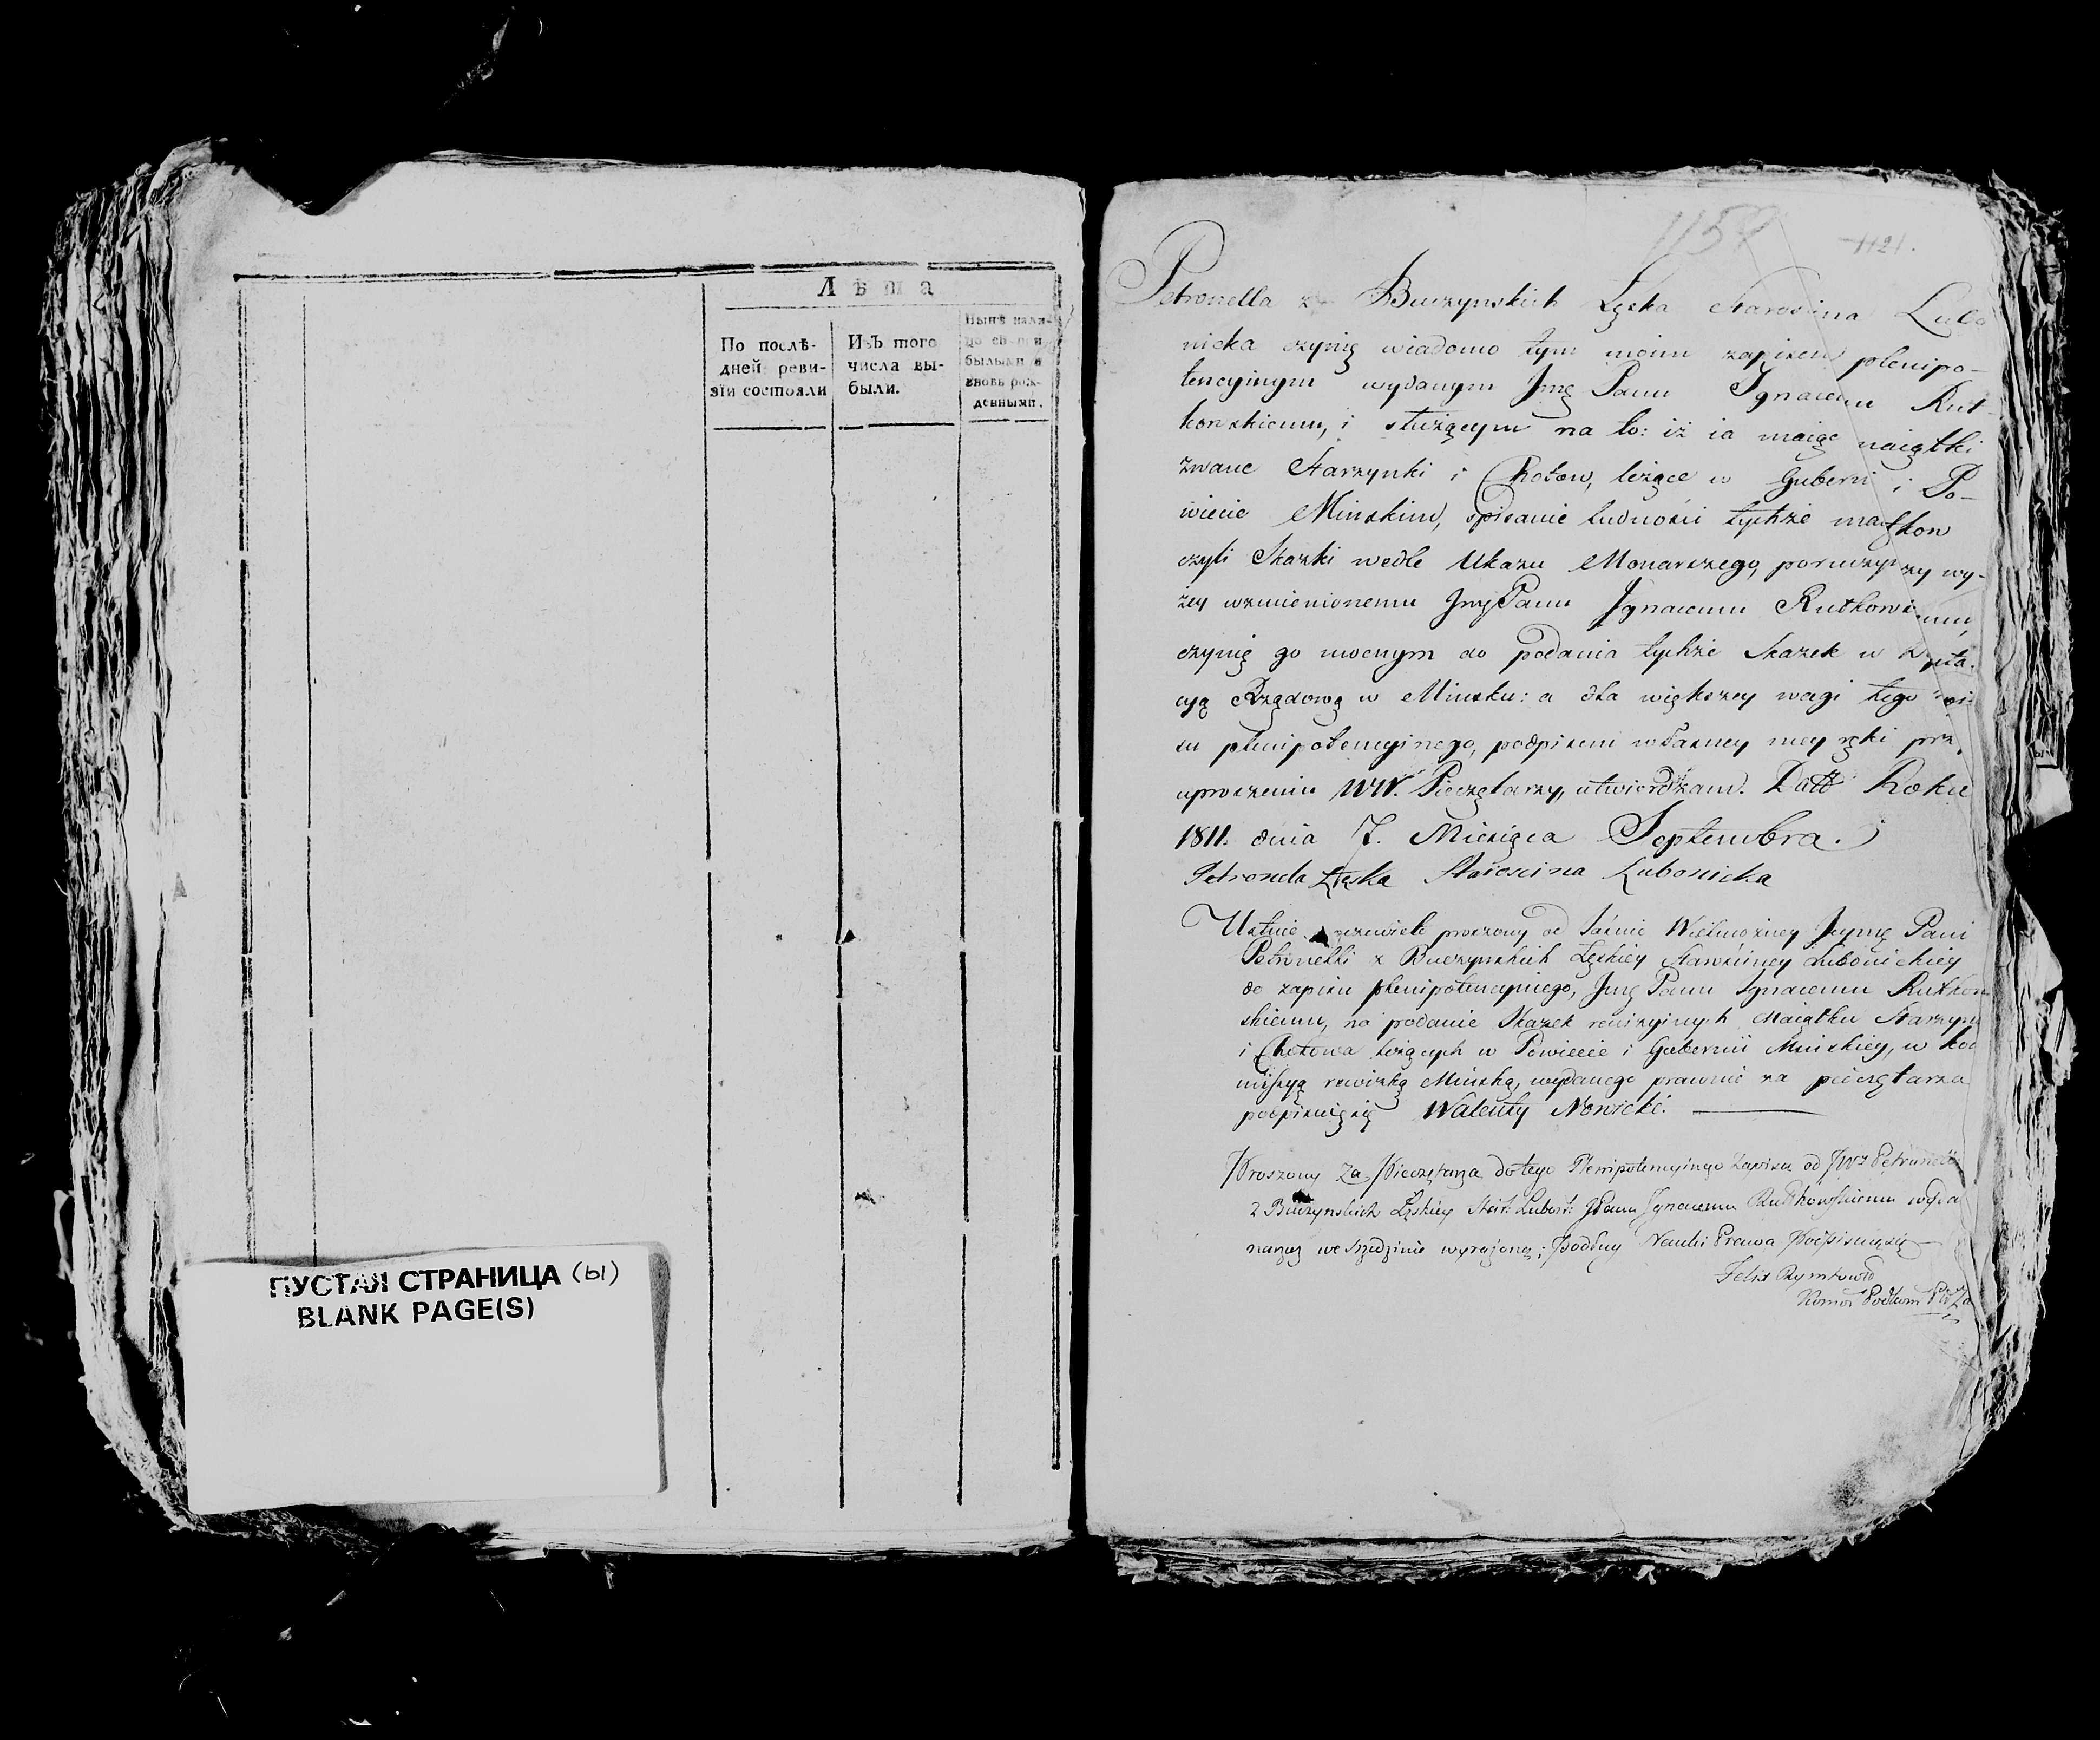 Лѣта
По послѣ-
дней реви-
зіи состояли
Изъ того
числа вы-
были.
Нынѣ нали-
былыми и
вновь рож-
денными.
ПУСТАЯ СТРАНИЦА (ы)
BLANK PAGE(S)
1157 1121.
Petronella z Buczynskich Łęska Starościna Lubo
nicka czynię wiadomo tym moim zapisem plenipo-
tencyinym wydanym Jmę Panu Ignacemu Rut-
kowskiemu, i służącym na to: iż ia maiąc maiątki
zwane Starzynki i Chotow, leżące w Guberni i Po-
wiecie Minskim, spisanie ludności tychże maiątkow
czyli Skazki wedle Ukazu Monarszego, poruczywszy wy-
żey wzmienionemu Jmę Panu Ignacemu Rutkowskiemu,
czynię go mocnym do podania tychże Skazek w
cyą Rządową w Minsku: a dla większey wagi tego
su plenipotencyinego, podpisem własney mey ręki przy
uproszeniu WW. Pieczętarzy, utwierdzam. Datt Roku
1811. dnia 7. Miesiąca Septembra.
Petronela Łęska Starościna Lubonicka
Ustnie oczewisto proszony od Jaśnie Wielmożney Jeymę Pani
Petronelli z Buczynskich Łęskiey Starościney Lubonickiey
do zapisu plenipotencyinego, Jmę Panu Ignacemu Rutkow
skiemu, na podanie Skazek rewizyinych Maiątku Starzyn
i Chotowa leżących w Powiecie i Gubernii Minskiey, w Ko
missyą rewizką Minską, wydanego prawnie za pieczętarza
podpisuię się Walenty Nowicki.
Proszony Za Pieczętarza do tego Plenipotencyinego Zapisu od JW Petronelli
z Buczynskich Łęskiey Star: Lubon: JPanu Ignacemu Rutkowskiemu wyda
narzecz we Srzedzinie wyrażoną; podług Nauki Prawa Podpisuię się
Felix Rymtowt
Komor